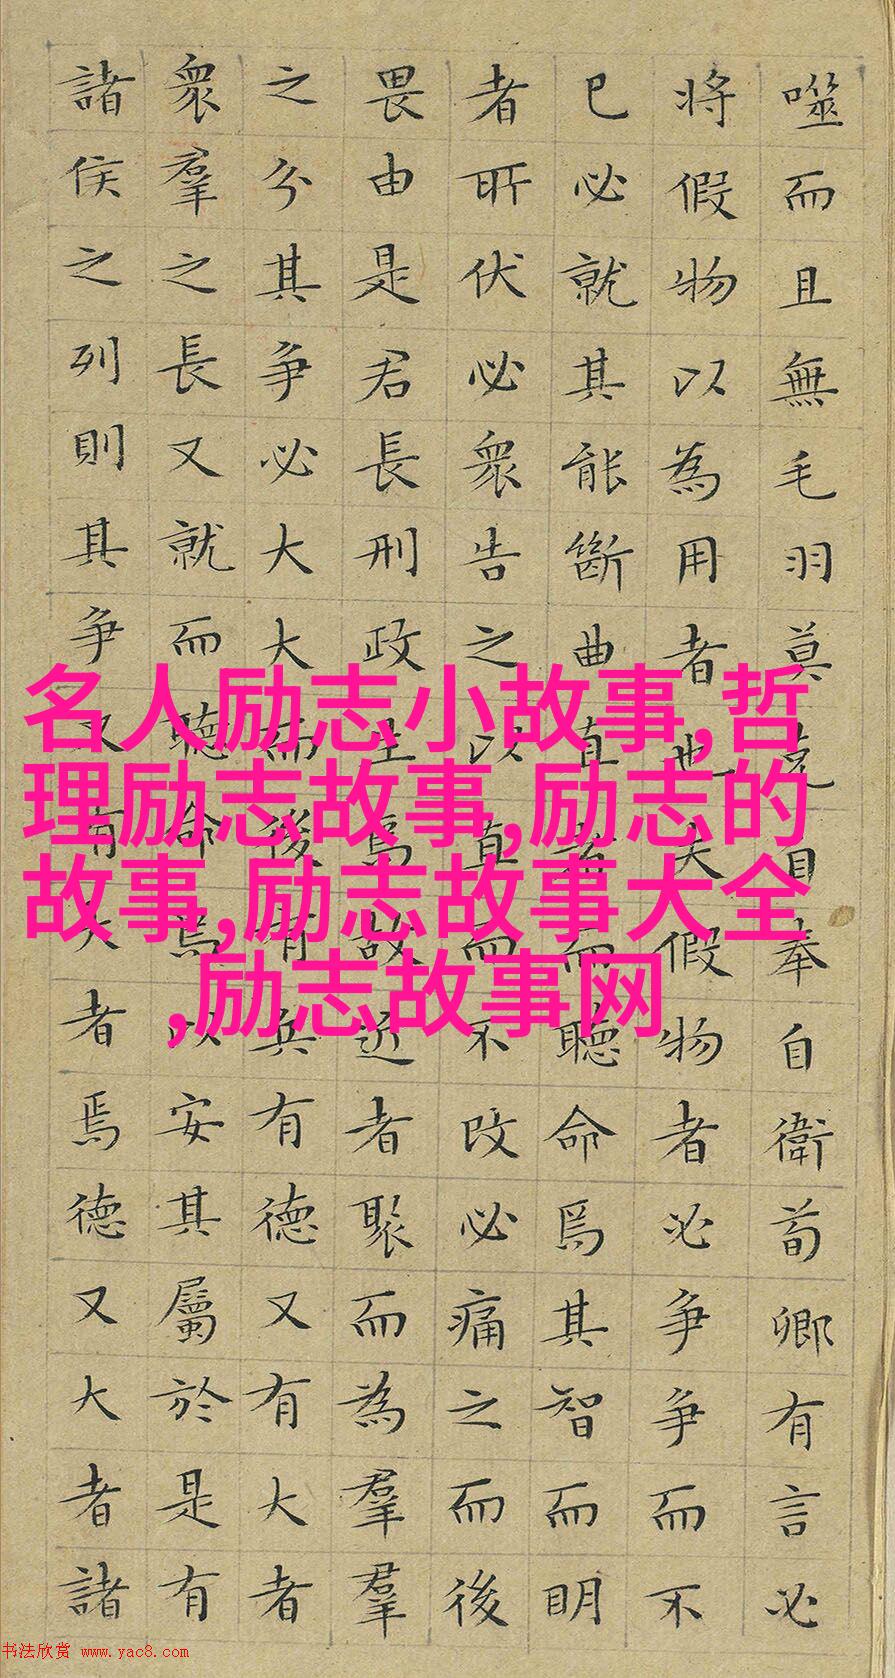 噬而且無毛羽莫克自奉自衛荀卿有言必
將假物以為用者也夫假物者必爭爭而不
已必就其能斷曲直者而聽命焉其智而明
者所伏必衆告之以直而不改必痛之而後
畏由是君長刑政生焉故近者聚而為羣羣
之分其爭必大大而後有兵有德又有大者
衆羣之長又就而聽命焉以安其屬於是有
諸侯之列則其爭又有大者焉德又大者諸
名人励志小故事,哲
理励志故事,励志的
故事,励志故事大全
,励志故事网
书法欣赏 www.yac8.com